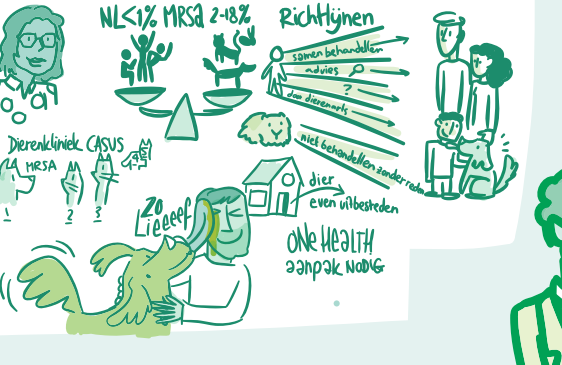 NL<1% MRSA 2-18%
Richtlijnen
samen behandelen
advies
?
door dierenarts
niet behandelen zonder reden
Dierenkliniek CASUS
MRSA
1 2 3
4
Zo
Lieeeef
dier
even uitbesteden
ONE HEALTH
aanpak NODIG